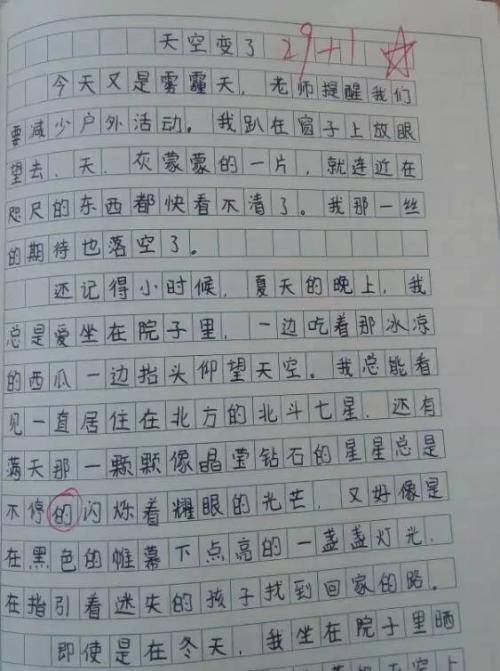 天空变了 29+1
今天又是雾霾天，老师提醒我们
要减少户外活动。我趴在窗子上放眼
望去，天，灰蒙蒙的一片，就连近在
咫尺的东西都快看不清了。我那一丝
的期待也落空了。
还记得小时候，夏天的晚上，我
总是爱坐在院子里，一边吃着那冰凉
的西瓜一边抬头仰望天空。我总能看
见一直居住在北方的北斗七星，还有
满天那一颗颗像晶莹钻石的星星总是
不停的闪烁着耀眼的光芒，又好像是
在黑色的帷幕下点亮的一盏盏灯光，
在指引着迷失的孩子找到回家的路。
即使是在冬天，我坐在院子里晒